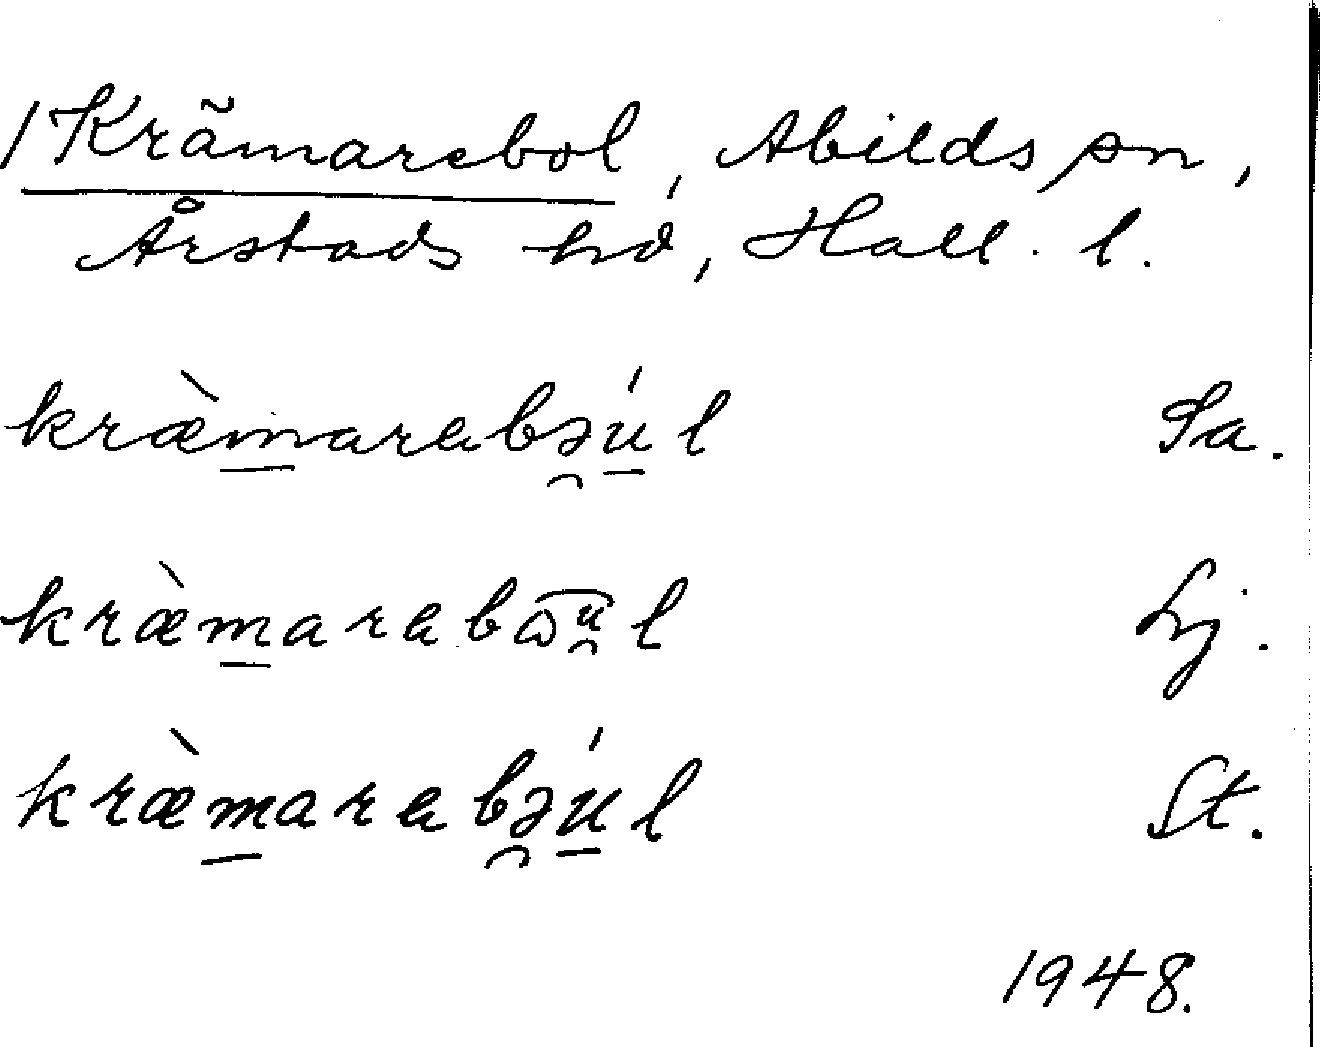 /Krämarebol, Abilds sn,
Årstads hd, Hall. l.
kræ̀m̱arabə̯ú̱l Sa.
kræ̀m̱araba͡u̯l Lj.
kræ̀m̱arabə̯ú̱l St.
1948.